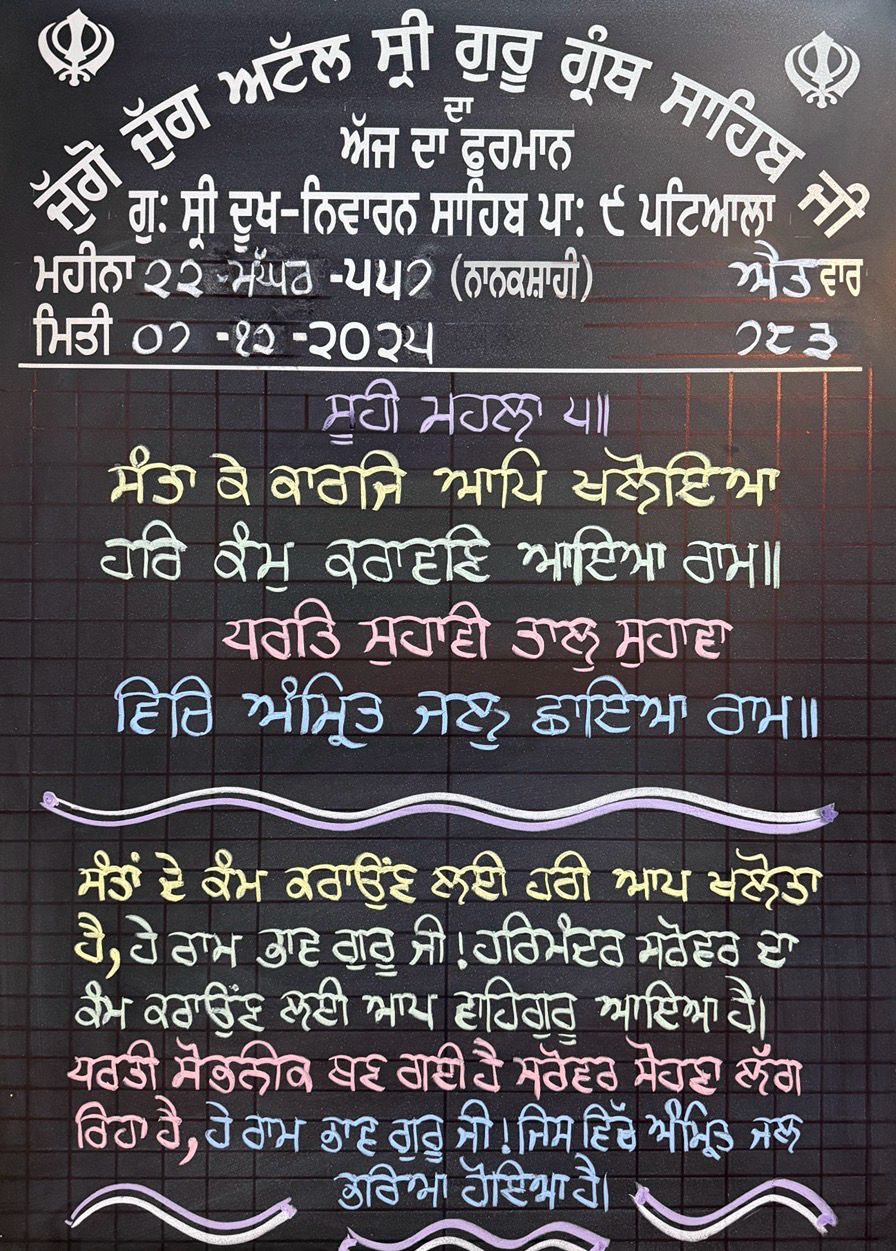 ਜੁੱਗੋ ਜੁੱਗ ਅਟੱਲ ਸ੍ਰੀ ਗੁਰੂ ਗ੍ਰੰਥ ਸਾਹਿਬ ਜੀ
ਦਾ
ਅੱਜ ਦਾ ਫੁਰਮਾਨ
ਗੁ: ਸ੍ਰੀ ਦੂਖ-ਨਿਵਾਰਨ ਸਾਹਿਬ ਪਾ: ੯ ਪਟਿਆਲਾ
ਮਹੀਨਾ ੨੨ -ਮੱਘਰ -੫੫੭ (ਨਾਨਕਸ਼ਾਹੀ) ਐਤਵਾਰ
ਮਿਤੀ ੦੭ -੧੨ -੨੦੨੫ ੭੮੩
ਸੂਹੀ ਮਹਲਾ ੫॥
ਸੰਤਾ ਕੇ ਕਾਰਜਿ ਆਪਿ ਖਲੋਇਆ
ਹਰਿ ਕੰਮੁ ਕਰਾਵਣਿ ਆਇਆ ਰਾਮ॥
ਧਰਤਿ ਸੁਹਾਵੀ ਤਾਲੁ ਸੁਹਾਵਾ
ਵਿਚਿ ਅੰਮ੍ਰਿਤ ਜਲੁ ਛਾਇਆ ਰਾਮ॥
ਸੰਤਾਂ ਦੇ ਕੰਮ ਕਰਾਉਂਣ ਲਈ ਹਰੀ ਆਪ ਖਲੋਤਾ
ਹੈ, ਹੇ ਰਾਮ ਭਾਵ ਗੁਰੂ ਜੀ! ਹਰਿਮੰਦਰ ਸਰੋਵਰ ਦਾ
ਕੰਮ ਕਰਾਉਂਣ ਲਈ ਆਪ ਵਾਹਿਗੁਰੂ ਆਇਆ ਹੈ।
ਧਰਤੀ ਸੋਭਨੀਕ ਬਣ ਗਈ ਹੈ ਸਰੋਵਰ ਸੋਹਣਾ ਲੱਗ
ਰਿਹਾ ਹੈ, ਹੇ ਰਾਮ ਭਾਵ ਗੁਰੂ ਜੀ! ਜਿਸ ਵਿੱਚ ਅੰਮ੍ਰਿਤ ਜਲ
ਭਰਿਆ ਹੋਇਆ ਹੈ।